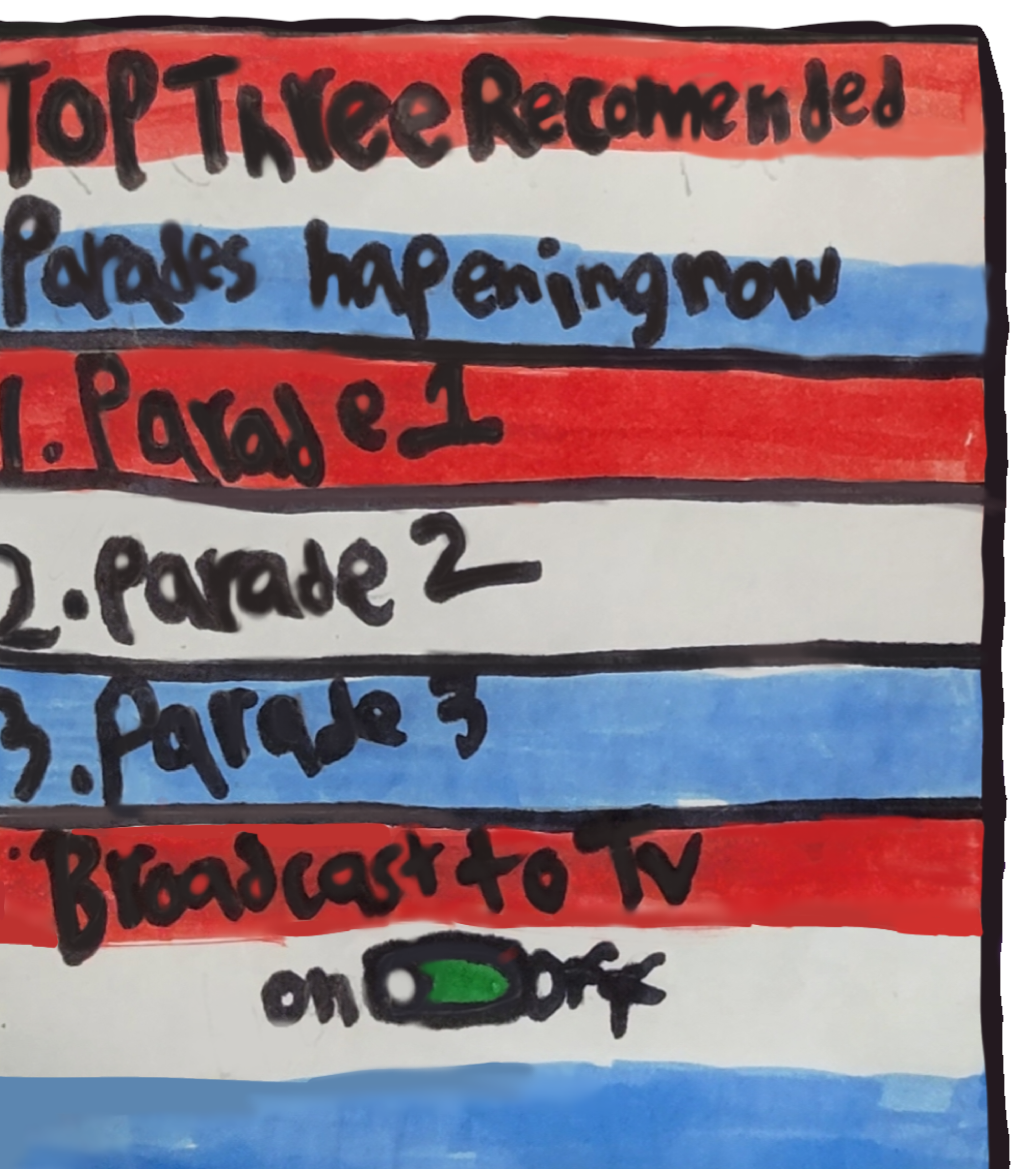 Top Three Recomended
Parades hapening now
1. Parade 1
2. Parade 2
3. Parade 3
Broadcast to Tv
on off